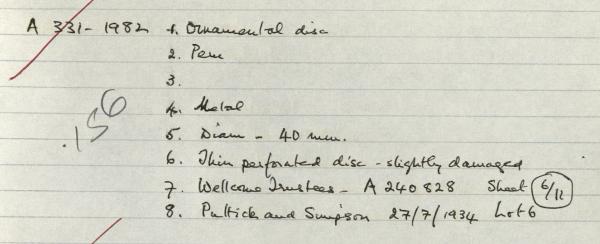 A 331-1982 1. Ornamental disc
2. Peru
3.
4. Metal
.156
5. Diam - 40 mm.
6. Thin perforated disc - slightly damaged
7. Wellcome Trustees - A 240828 Sheet 6/11
8. Puttick and Simpson 27/7/1934 Lot 6